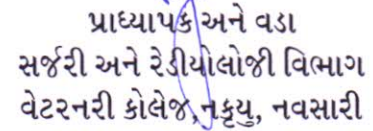 પ્રાધ્યાપક અને વડા
સર્જરી અને રેડીયોલોજી વિભાગ
વેટરનરી કોલેજ,નકૃયુ, નવસારી